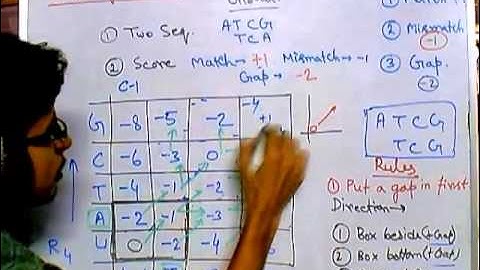 ① Two Seq.
A T C G
T C A
② Score Match→ +1 Mismatch→ -1
Gap→ -2
Mismatch
-1
③ Gap.
-2
C-1
G -8 -5 -2 -4 +1
C -6 -3 0
T -4 -1 -2
A -2 -1 -3
U 0 -2 -4
R4
A T C G
T C G
Rules
① Put a gap in first
Direction→
① Box beside (+Gap)
② Box bottom (+Gap)